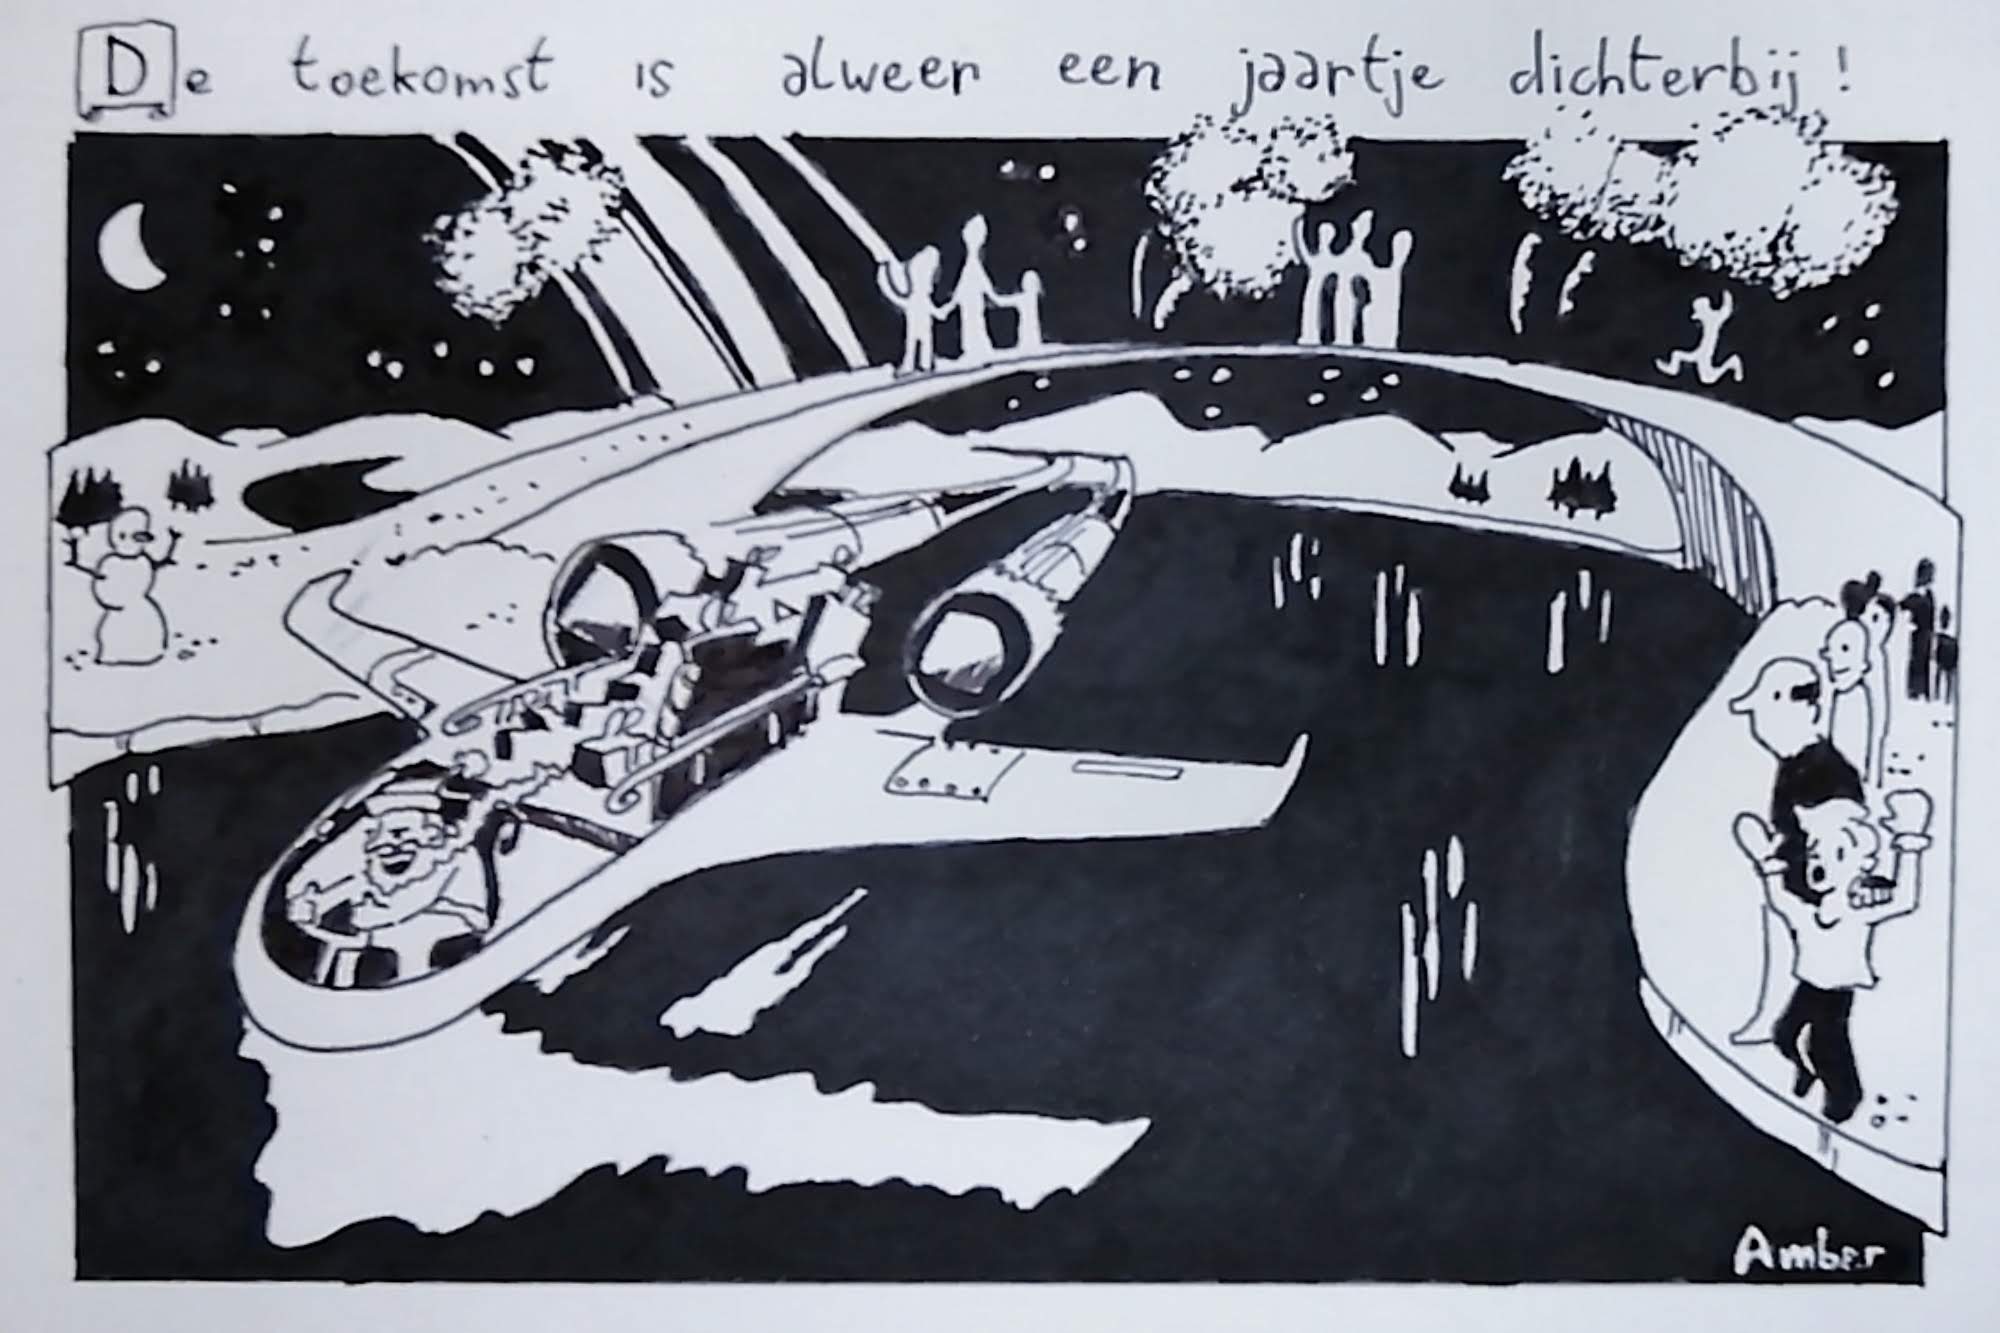 De toekomst is alweer een jaartje dichterbij!
Amber